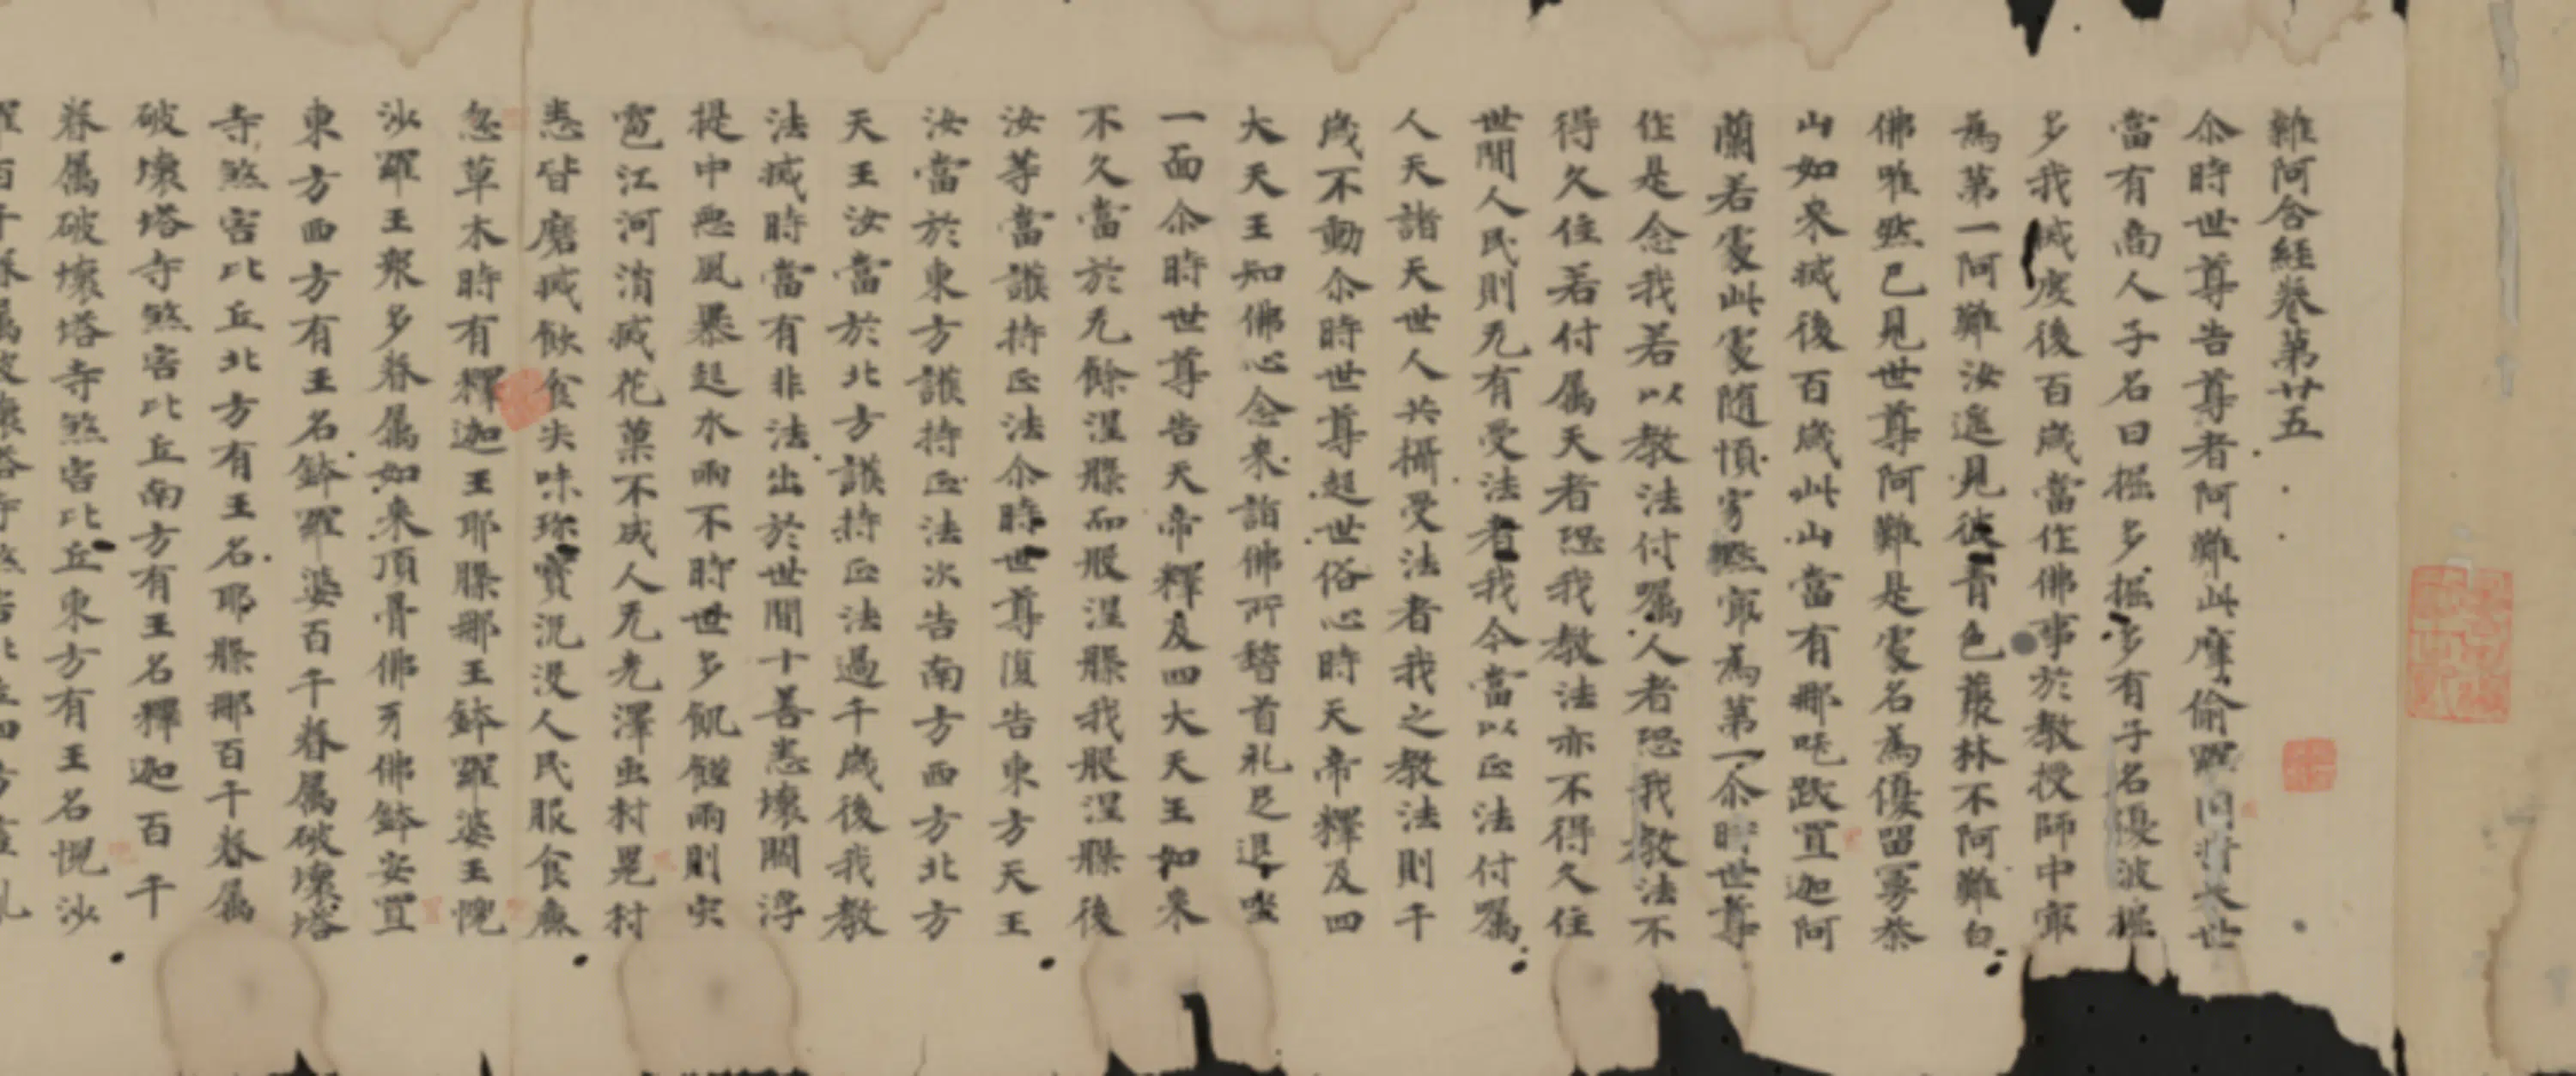 雜阿含經卷第廿五
尒時世尊告尊者阿難此摩偷羅囯將來世
當有商人子名曰掘多掘多有子名優波掘
多我滅度後百歲當作佛事於教授師中㝡
為第一阿難汝遥見彼青色藂林不阿難白
佛唯然已見世尊阿難是處名為優留曼荼
山如来滅後百歲此山當有那吒跋置迦阿
蘭若處此處隨順寂黙㝡為第一尒時世尊
作是念我若以教法付囑人者恐我教法不
得久住若付属天者恐我教法亦不得久住
世間人民則无有受法者我今當以正法付囑
人天諸天世人共攝受法者我之教法則千
歲不動尒時世尊起世俗心時天帝釋及四
大天王知佛心念来詣佛所稽首礼足退坐
一面尒時世尊告天帝釋及四大天王如来
不久當於无餘涅槃而般涅槃我般涅槃後
汝等當護持正法尒時世尊復告東方天王
汝當於東方護持正法次告南方西方北方
天王汝當於北方護持正法過千歲後我教
法滅時當有非法出於世間十善悉壞閻浮
提中惡風暴起水雨不時世多飢饉雨則灾
雹江河消滅花菓不成人无光澤虫村鬼村
悉皆磨滅飲食失味珎寶沉没人民服食麁
忽草木時有釋迦王耶槃那王鉢羅婆王愧
沙羅王衆多眷属如来頂骨佛牙佛鉢安置
東方西方有王名鉢羅婆百千眷属破壞塔
寺煞害比丘北方有王名耶槃那百千眷属
破壞塔寺煞害比丘南方有王名釋迦百千
眷属破壞塔寺煞害比丘東方有王名愧沙